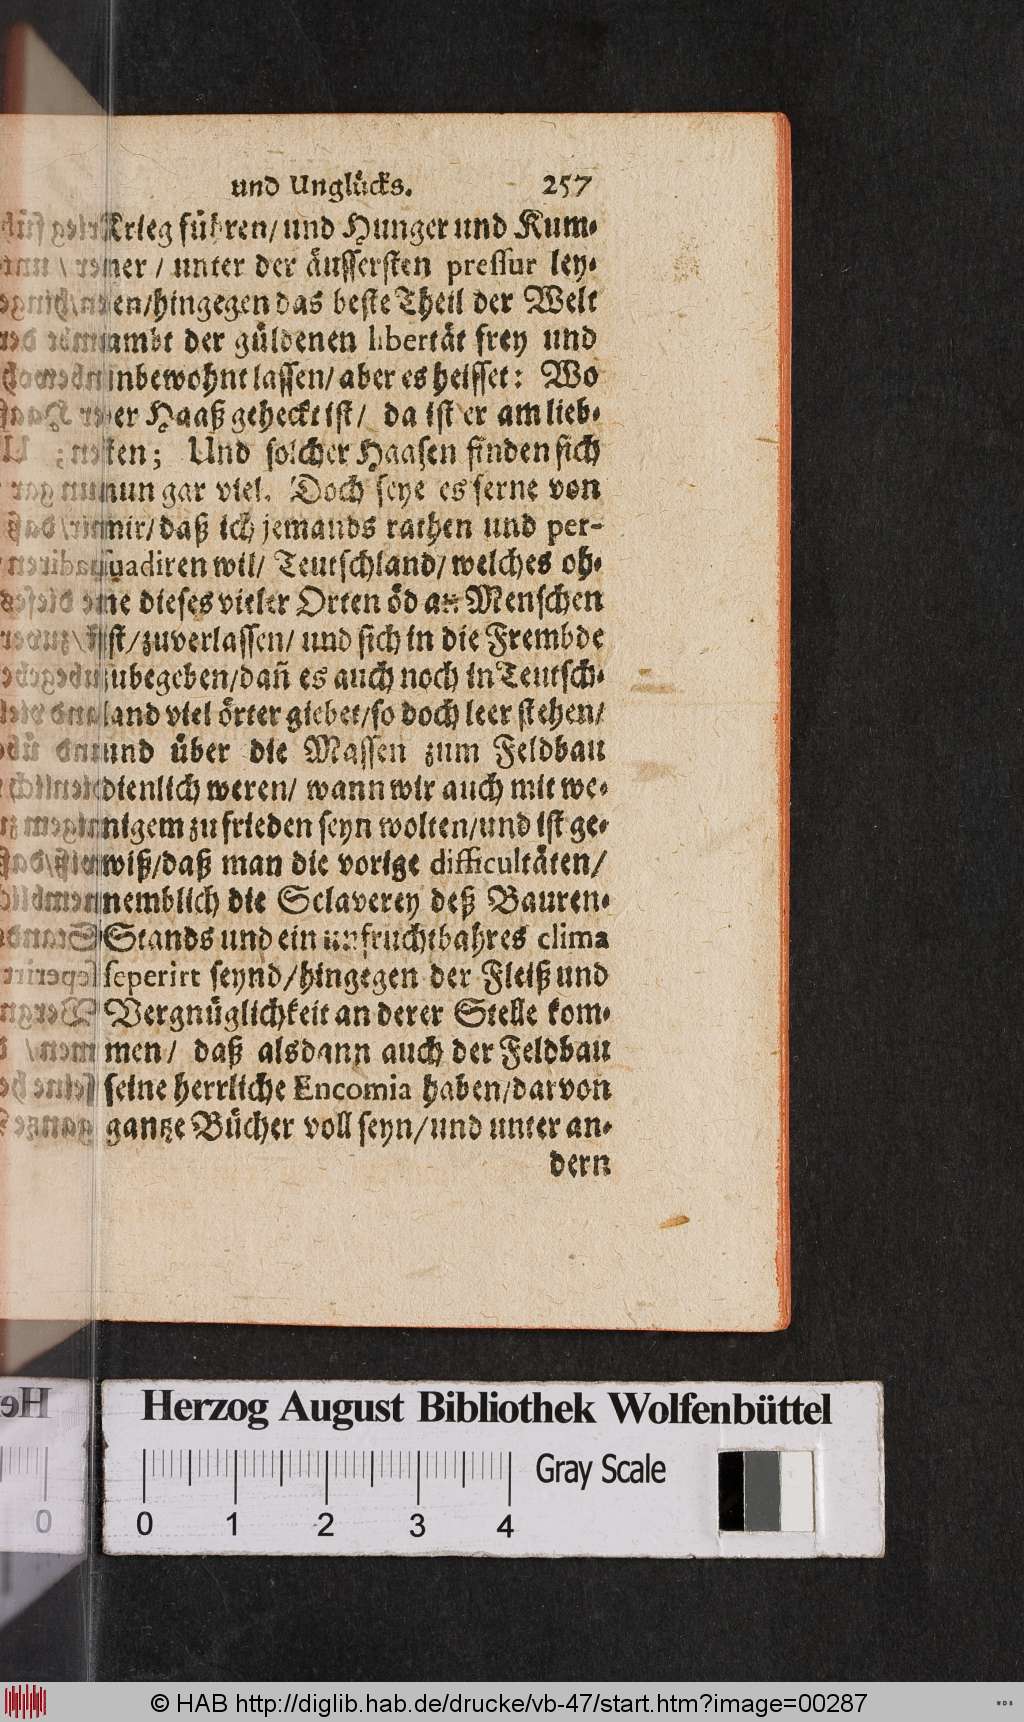 und Unglücks. 257
Krieg führen/ und Hunger und Kum-
mer / unter der äussersten pressur ley-
en/hingegen das beste Theil der Welt
sambt der güldenen libertät frey und
unbewohnt lassen/ aber es heisset: Wo
der Haaß geheckt ist/ da ist er am lieb-
sten; Und solcher Haasen finden sich
nun gar viel. Doch seye es ferne von
mir/ daß ich jemands rathen und per-
suadiren wil/ Teutschland/ welches oh-
ne dieses vieler Orten öd an Menschen
ist/ zuverlassen/ und sich in die Frembde
zubegeben/ dañ es auch noch in Teutsch-
land viel örter giebet/ so doch leer stehen/
und über die Massen zum Feldbau
dienlich weren/ wann wir auch mit we-
nigem zu frieden seyn wolten/ und ist ge-
wiß/ daß man die vorige difficultäten/
nemblich die Sclaverey deß Bauren-
Stands und ein unfruchtbahres clima
seperirt seynd/ hingegen der Fleiß und
Vergnüglichkeit an derer Stelle kom-
men/ daß alsdann auch der Feldbau
seine herrliche Encomia haben/ darvon
gantze Bücher voll seyn/ und unter an-
dern
Herzog August Bibliothek Wolfenbüttel
Gray Scale
0 1 2 3 4
© HAB http://diglib.hab.de/drucke/vb-47/start.htm?image=00287
WDB